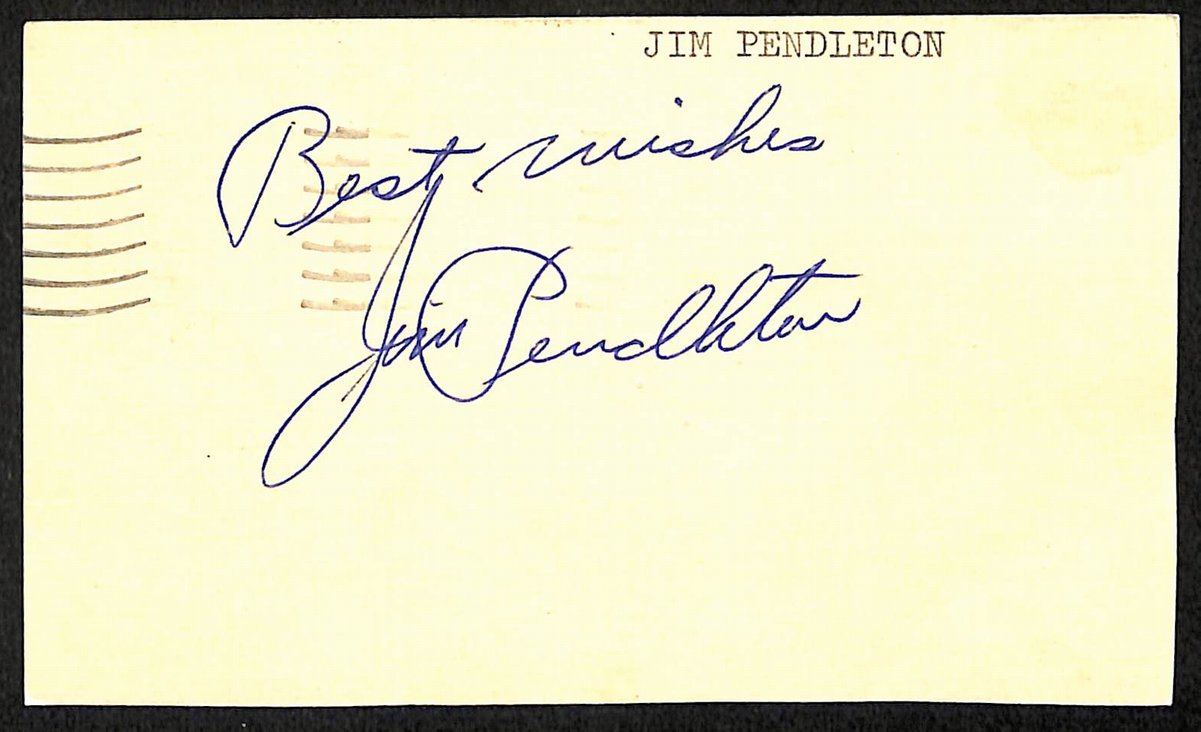 JIM PENDLETON
Best wishes
Jim Pendleton